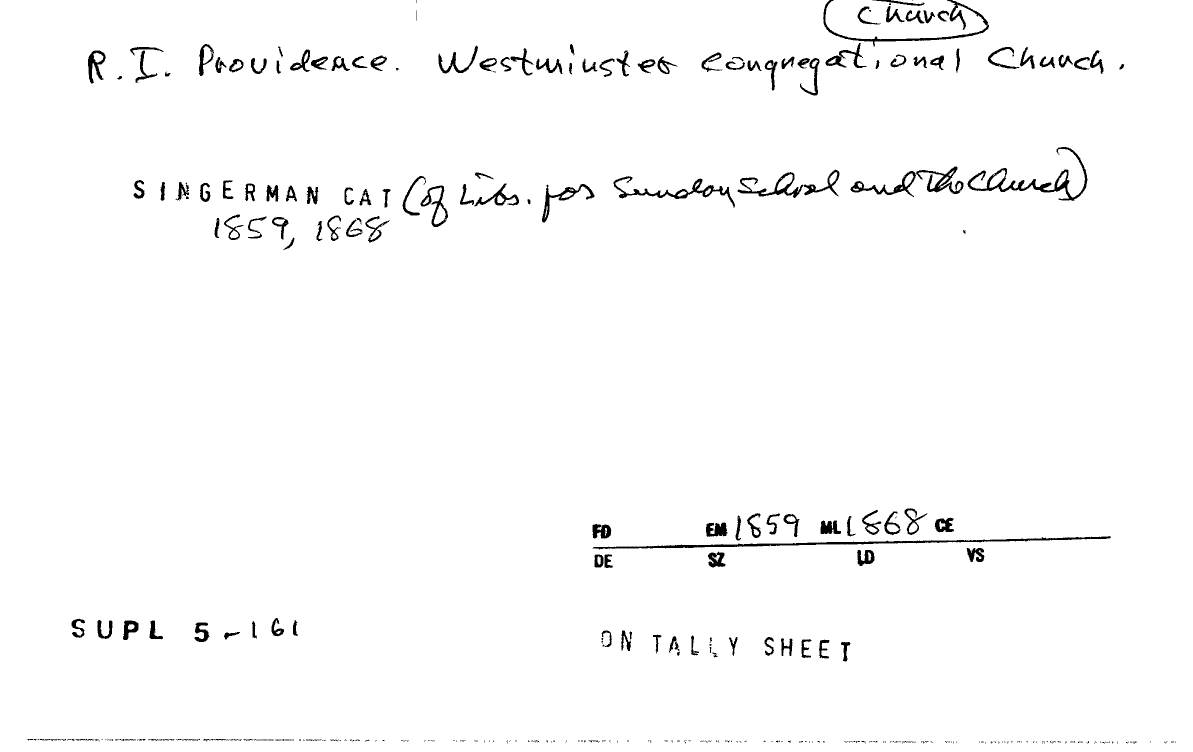 Church
R.I. Providence. Westminster Congregational Church.
SINGERMAN CAT (of Libs. for Sunday School and The Church)
1859, 1868
FD EM 1859 ML 1868 CE
DE SZ LD VS
SUPL 5-161
ON TALLY SHEET